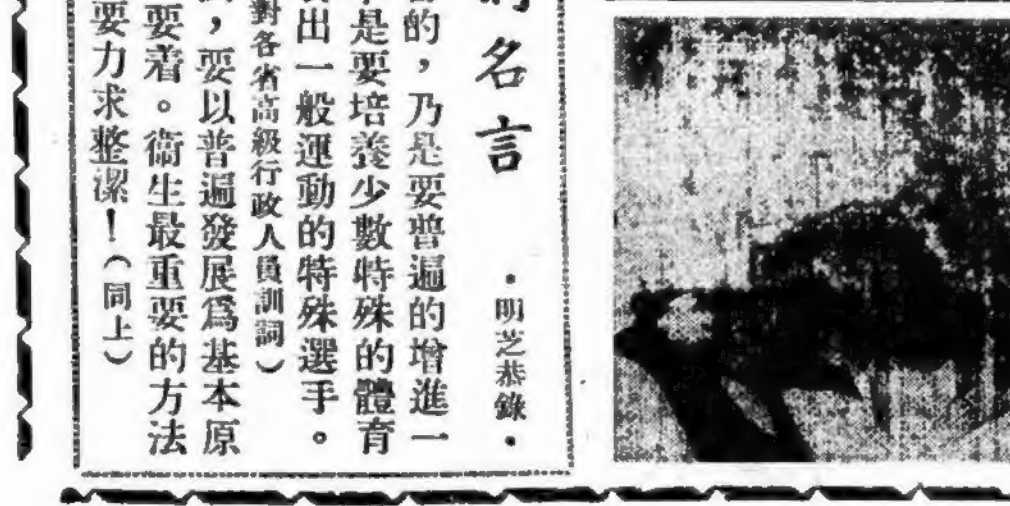 名言
•明芝恭錄•
的，乃是要普遍的增進一
是要培養少數特殊的體育
出一般運動的特殊選手。
對各省高級行政人員訓詞）
，要以普遍發展爲基本原
要着。衞生最重要的方法
要力求整潔！（同上）